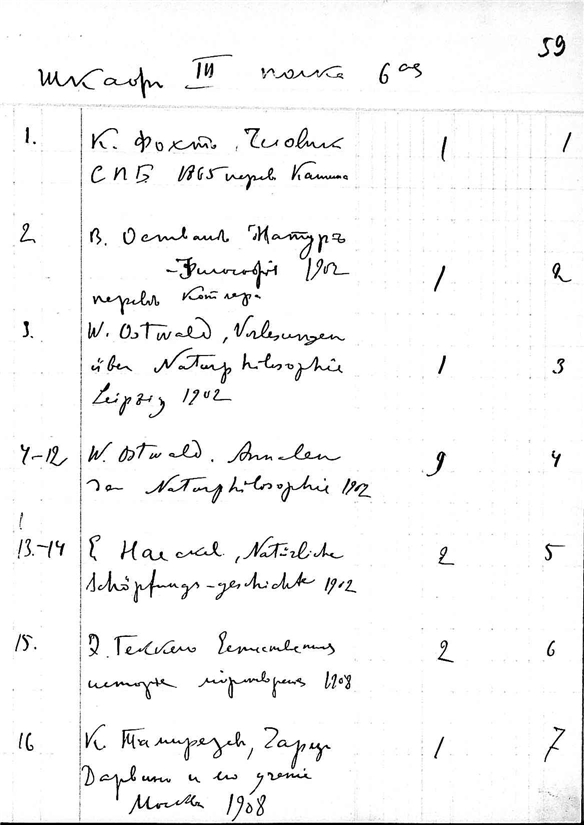 59
Шкафъ III полка 6ая
1. К. Фохтъ, Человекъ 1 1
СПБ 1865 перев
2 В. Оствальд Натуръ
-Философія 1902 1 2
перевод
3. W. Ostwald, Vorlesungen
über Naturphilosophie 1 3
Leipzig 1902
4-12 W. Ostwald. Annalen 9 4
der Naturphilosophie 1902
13.-14 E Haeckel, Natürliche 2 5
Schöpfungs-geschichte 1902
15. Э. Геккель Естественная 2 6
история миротворения 1908
16 К. Тимирязев, Чарльз 1 7
Дарвинъ и его ученіе
Москва 1908